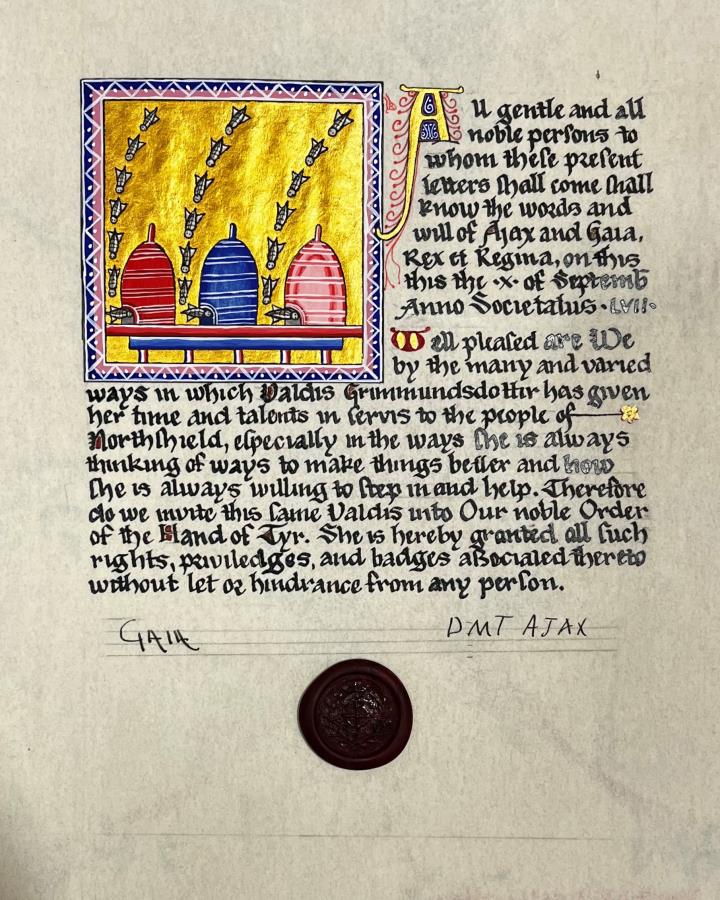 All gentle and all
noble persons to
whom these present
letters shall come shall
know the words and
will of Ajax and Gaia,
Rex et Regina, on this
this the ·x· of Septemb
Anno Societatus · LVII·
Well pleased are We
by the many and varied
ways in which Valdis Grimmundsdottir has given
her time and talents in servis to the people of
Northshield, especially in the ways she is always
thinking of ways to make things better and how
she is always willing to step in and help. Therefore
do we invite this same Valdis into Our noble Order
of the Hand of Tyr. She is hereby granted all such
rights, priviledges, and badges associated thereto
without let or hindrance from any person.
GAIA DMT AJAX